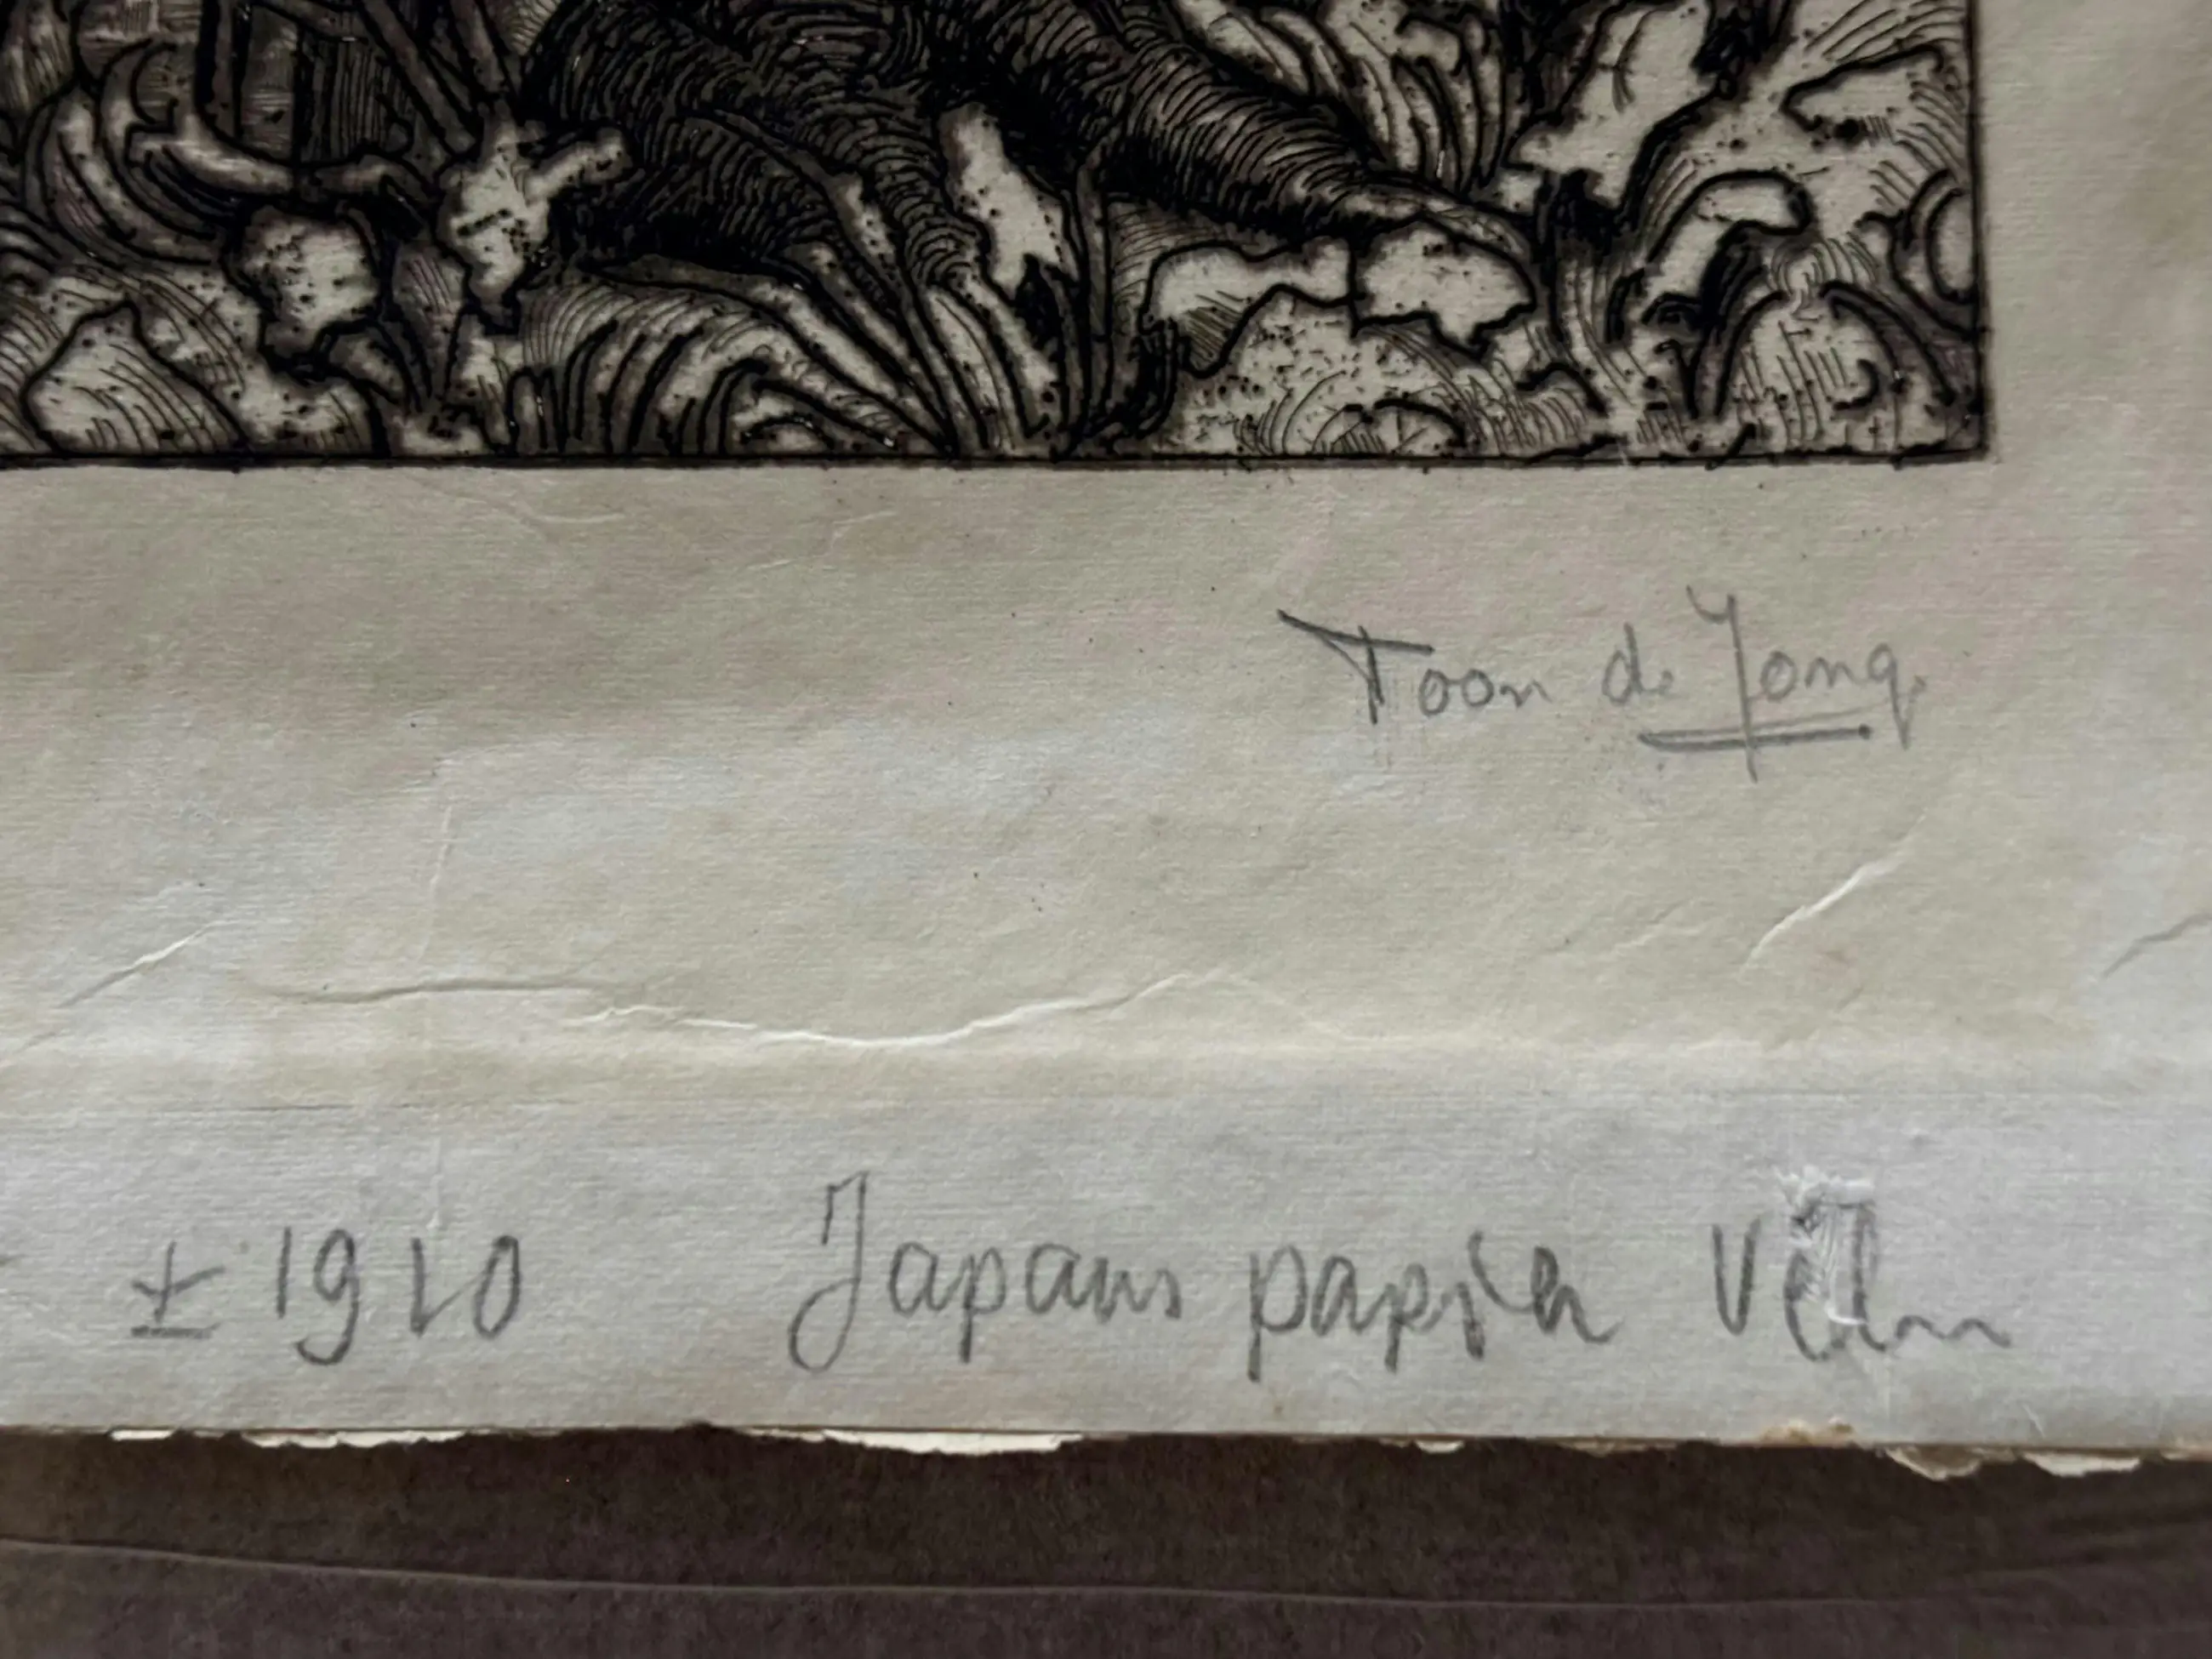 Toon de Jong
± 1910 Japans papier Velin